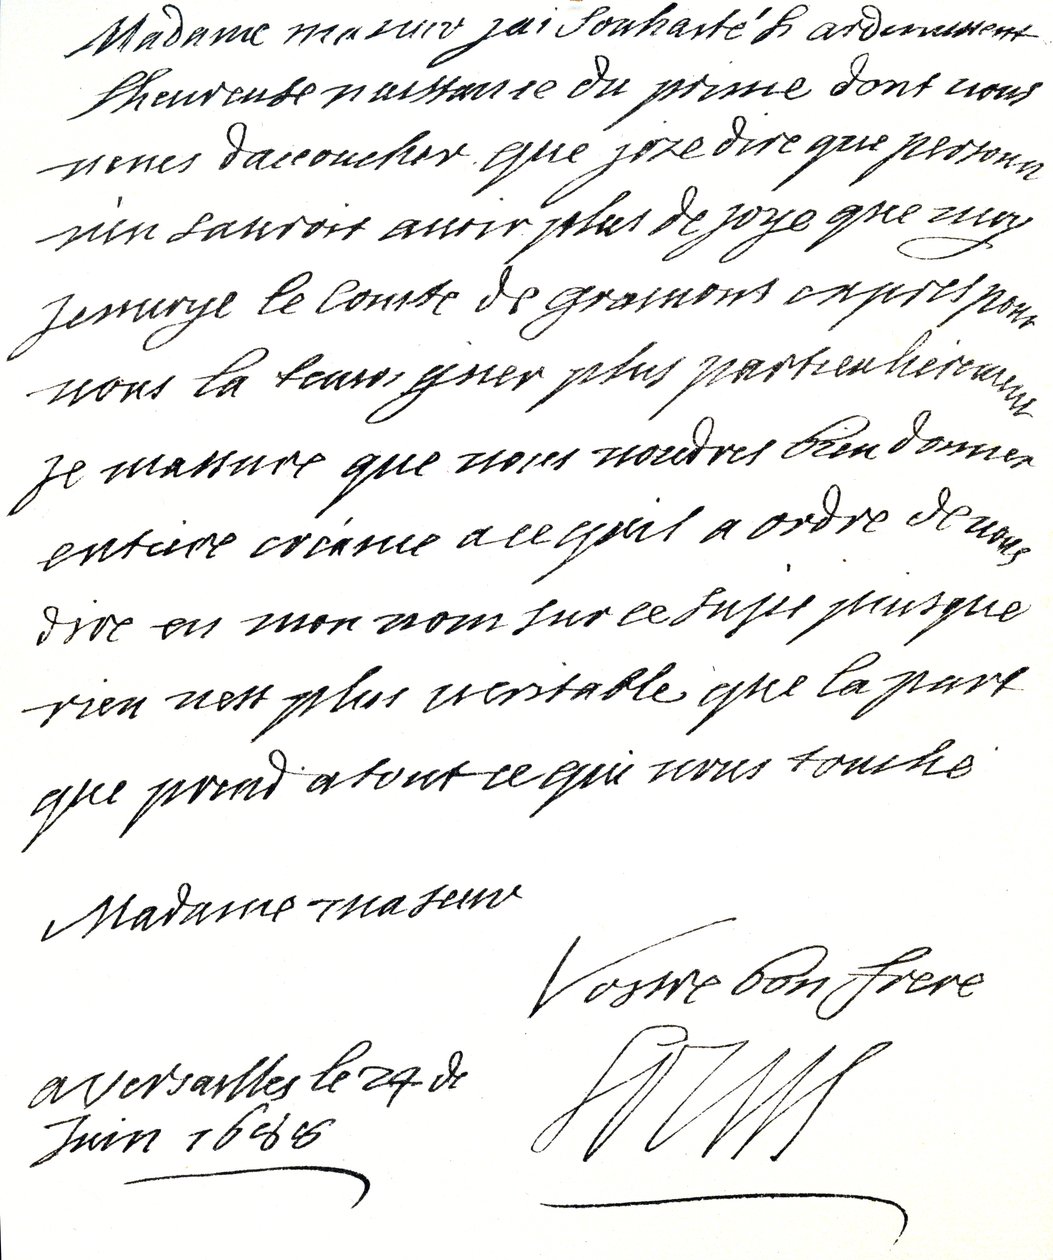 Madame ma seur jai souhaité si ardemment
lheureuse naissance du prince dont vous
venes daccoucher que joze dire que personn
n'en sauroit auoir plus de joye que moy
jenuoye le comte de gramont expres pour
vous la temoigner plus particulierement
je massure que vous voudres bien donner
entiere creance a ce qu'il a ordre de vous
dire en mon nom sur ce sujet puisque
rien nest plus veritable que la part
que prend a tout ce qui vous touche
Madame ma seur
Vostre bon frere
Louis
a Versailles le 24 de
Juin 1688